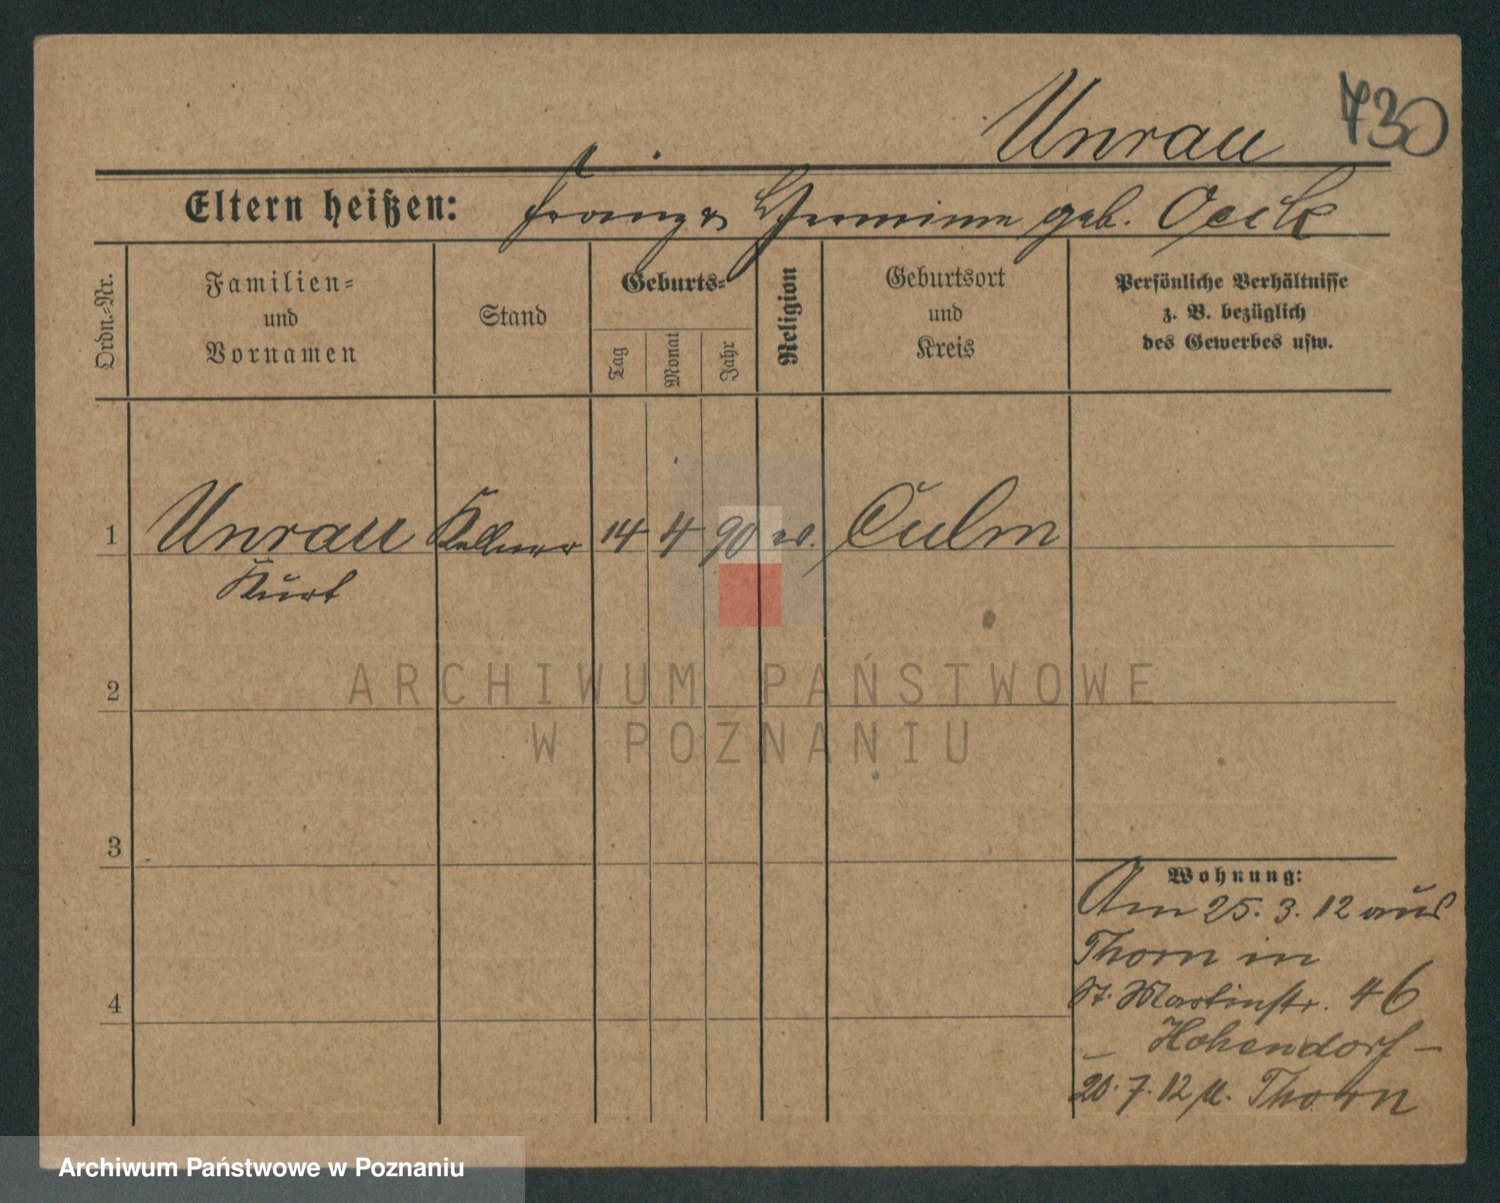 Unrau 730
Eltern heißen: Franz & Hermine geb. Oeck
Ordn.=Nr.
Familien=
und
Vornamen
Stand
Geburts=
Tag
Monat
Jahr
Religion
Geburtsort
und
Kreis
Persönliche Verhältnisse
z. B. bezüglich
des Gewerbes usw.
1 Unrau Kellner 14 4 90 ev. Culm
Kurt
2
3
4
Wohnung:
Am 25. 3. 12 aus
Thorn in
St. Martinstr. 46
– Hohendorf –
20. 7. 12 n. Thorn
ARCHIWUM PAŃSTWOWE
W POZNANIU
Archiwum Państwowe w Poznaniu